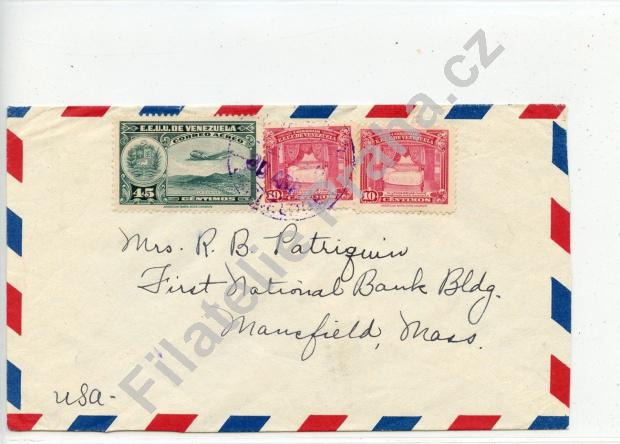 E.E.U.U. DE VENEZUELA
CORREO AEREO
45
CÉNTIMOS
E.E.U.U. DE VENEZUELA
E.E.U.U. DE VENEZUELA
10
CÉNTIMOS
Mrs. R. B. Patriquin
First National Bank Bldg.
Mansfield, Mass.
USA -
Filatelie Praha.cz